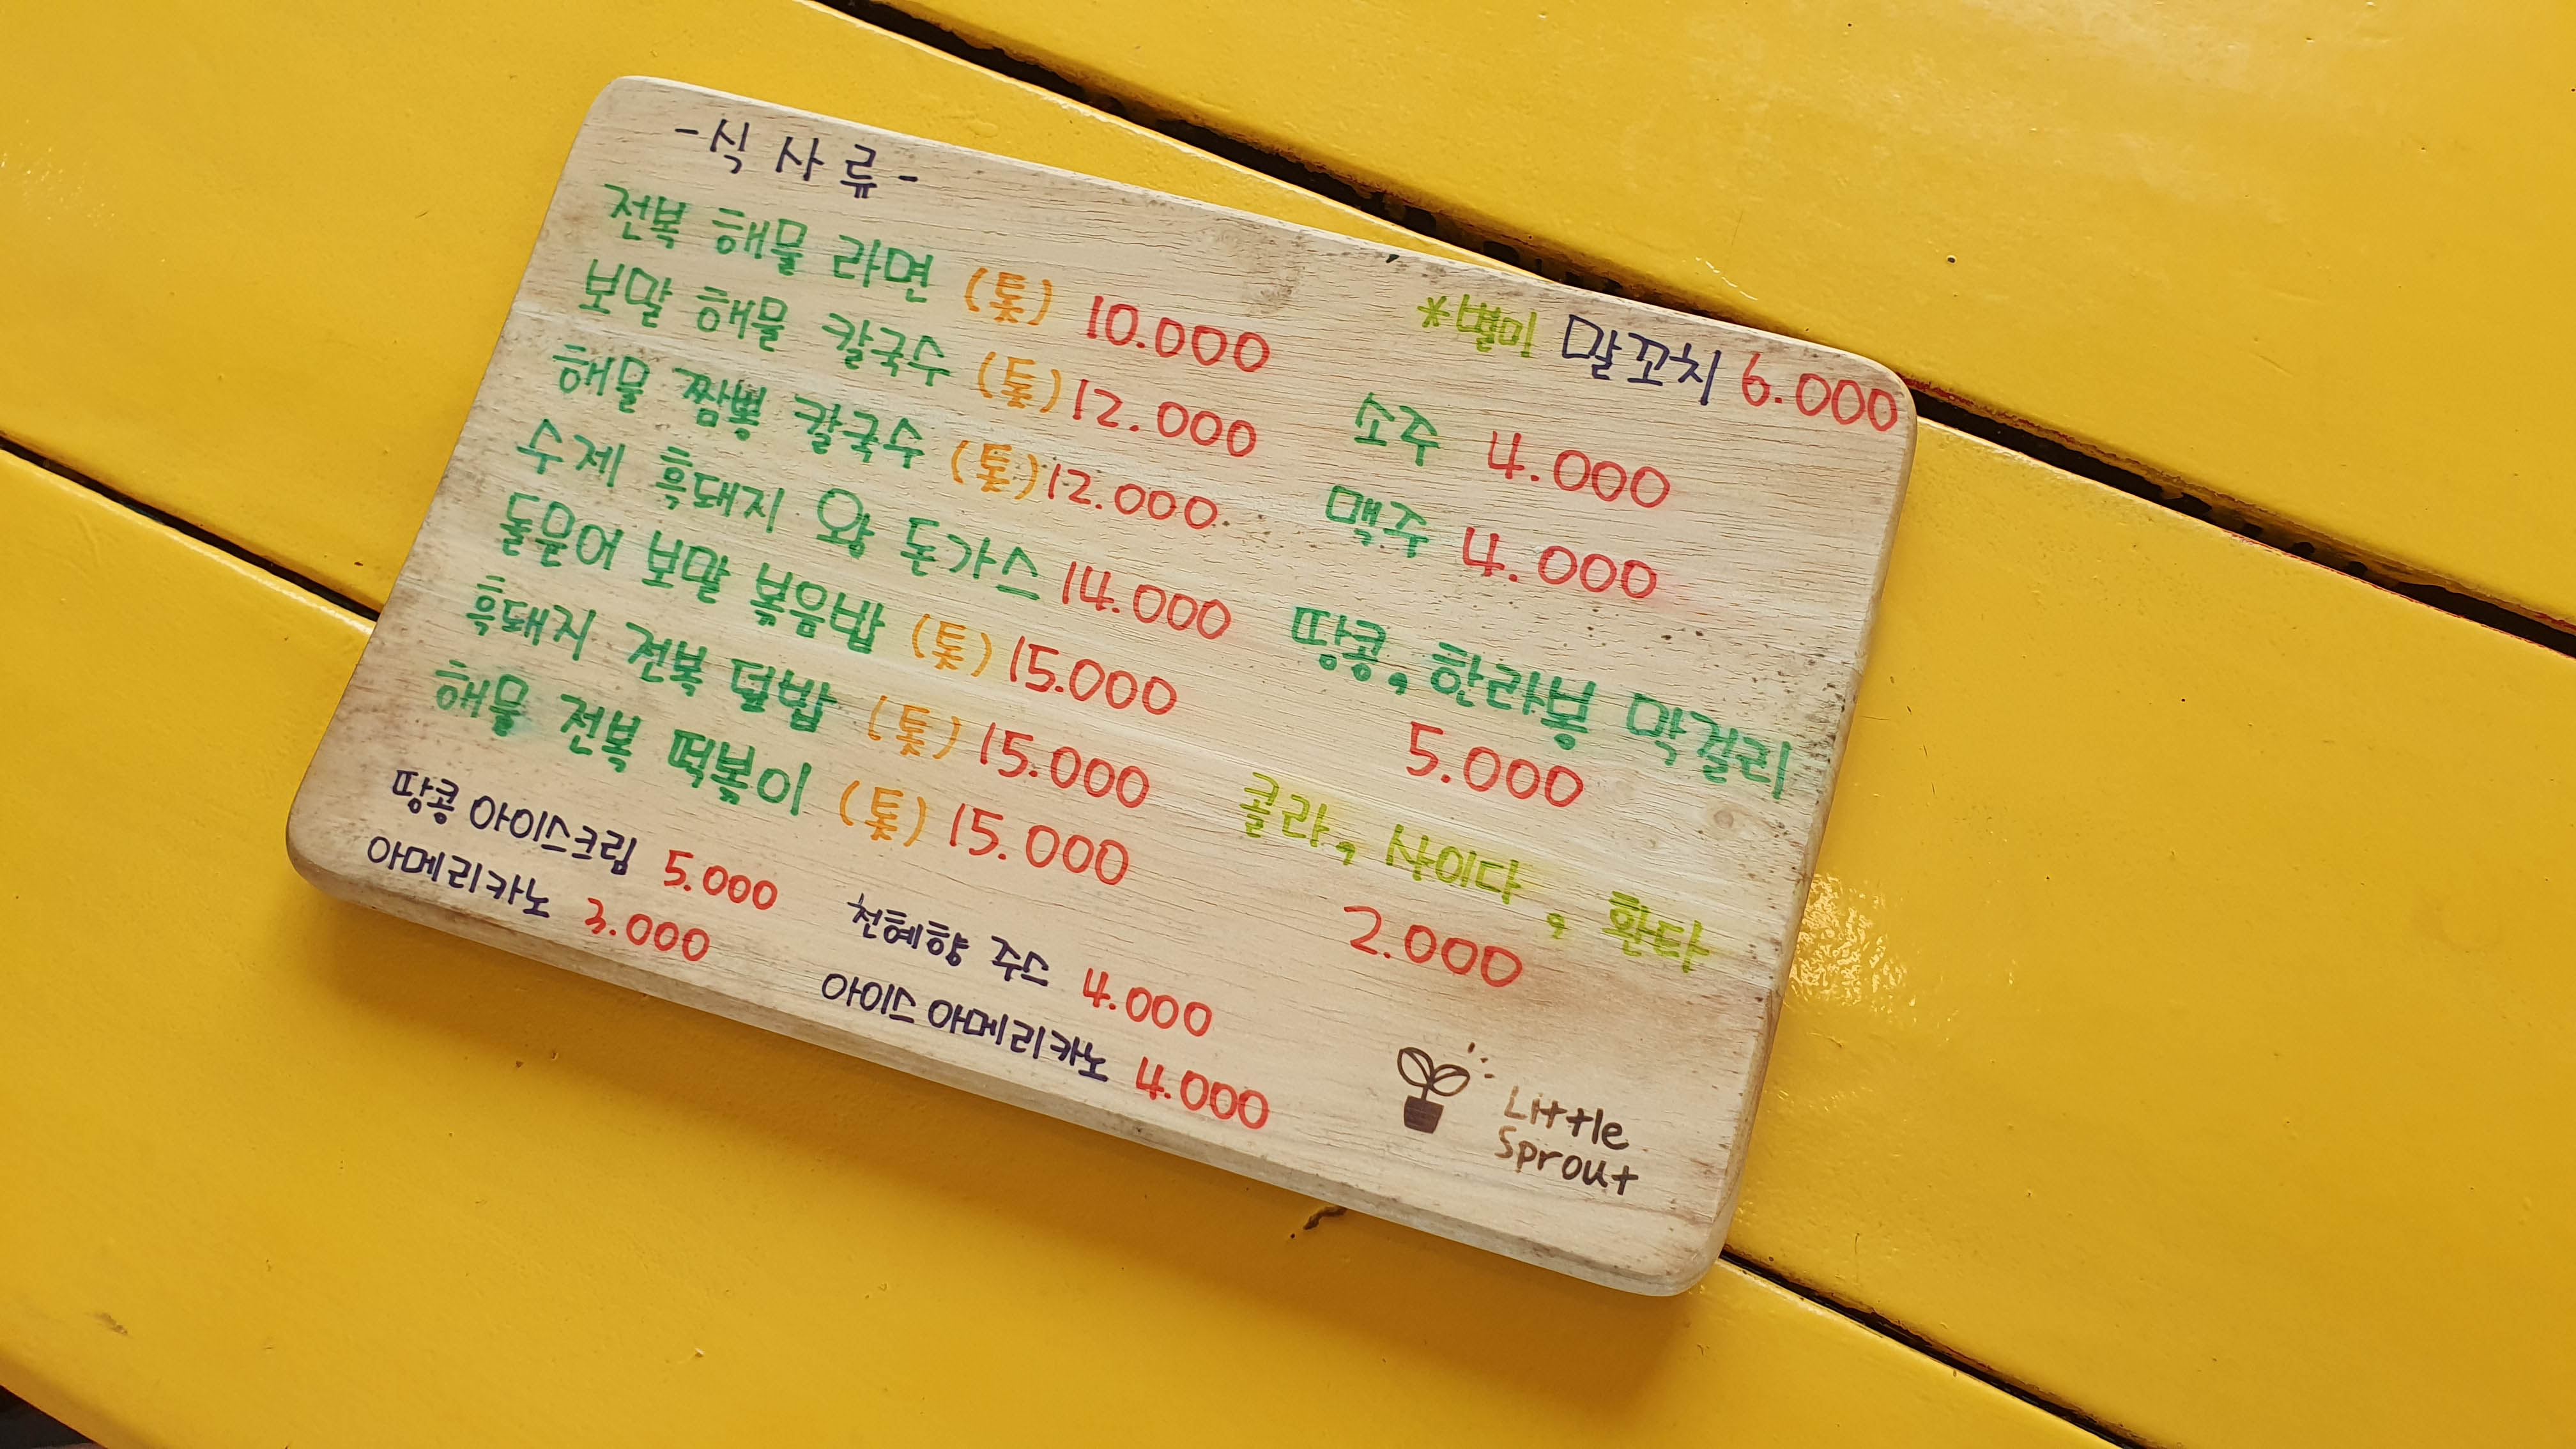 -식사류-
전복 해물 라면 (톳) 10.000
보말 해물 칼국수 (톳) 12.000
해물 짬뽕 칼국수 (톳) 12.000
수제 흑돼지 왕 돈가스 14.000
돌문어 보말 볶음밥 (톳) 15.000
흑돼지 전복 덮밥 (톳) 15.000
해물 전복 떡볶이 (톳) 15.000
땅콩 아이스크림 5.000
아메리카노 3.000
천혜향 주스 4.000
아이스 아메리카노 4.000
*별미 말꼬치 6.000
소주 4.000
맥주 4.000
땅콩, 한라봉 막걸리
5.000
콜라, 사이다, 환타
2.000
Little
Sprout